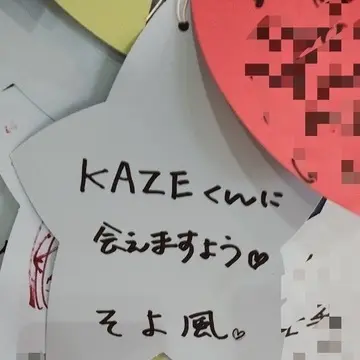 KAZEくんに
会えますよう♡
そよ風。